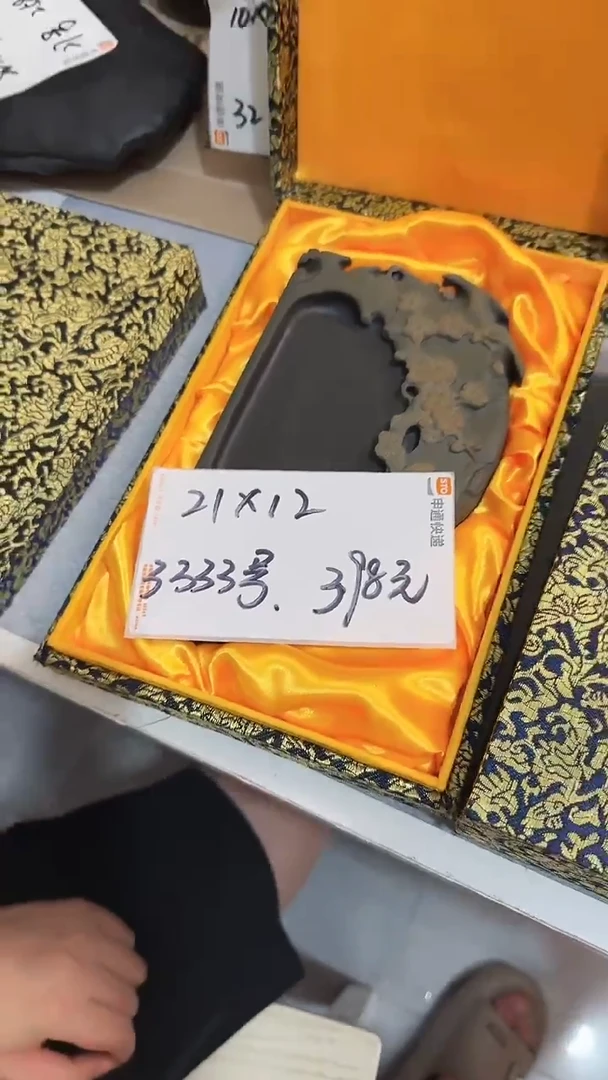 32
21×12
3333号. 398元
STO
申通快递